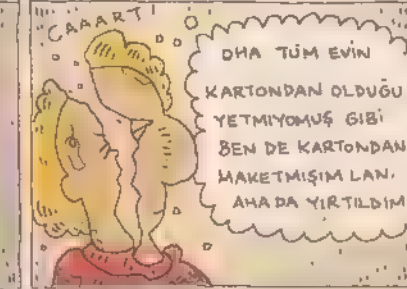 CAAART!
OHA TÜM EVİN
KARTONDAN OLDUĞU
YETMİYOMUŞ GİBİ
BEN DE KARTONDAN
MAKETMİŞİM LAN.
AHA DA YIRTILDIM